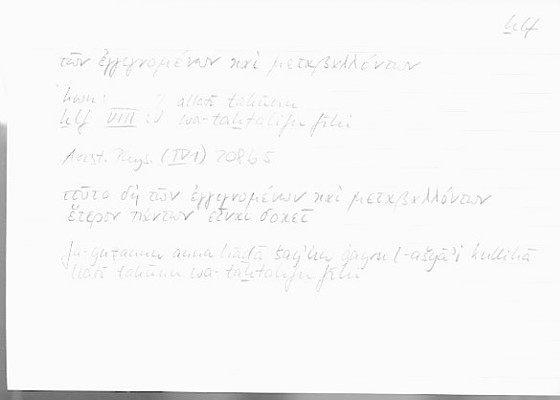 ḫlf
τῶν ἐγγιγνομένων καὶ μεταβαλλόντων
kwn: allatī takūnu
ḫlf VIII: wa-taḫtalifu fīhi
Arist. Phys. (IV 1) 208b5
τοῦτο δὴ τῶν ἐγγιγνομένων καὶ μεταβαλλόντων
ἕτερον πάντων εἶναι δοκεῖ
fa-yuẓannu anna hāḏā šayʾun ġayru l-ašyāʾi kullihā
llatī takūnu wa-taḫtalifu fīhi